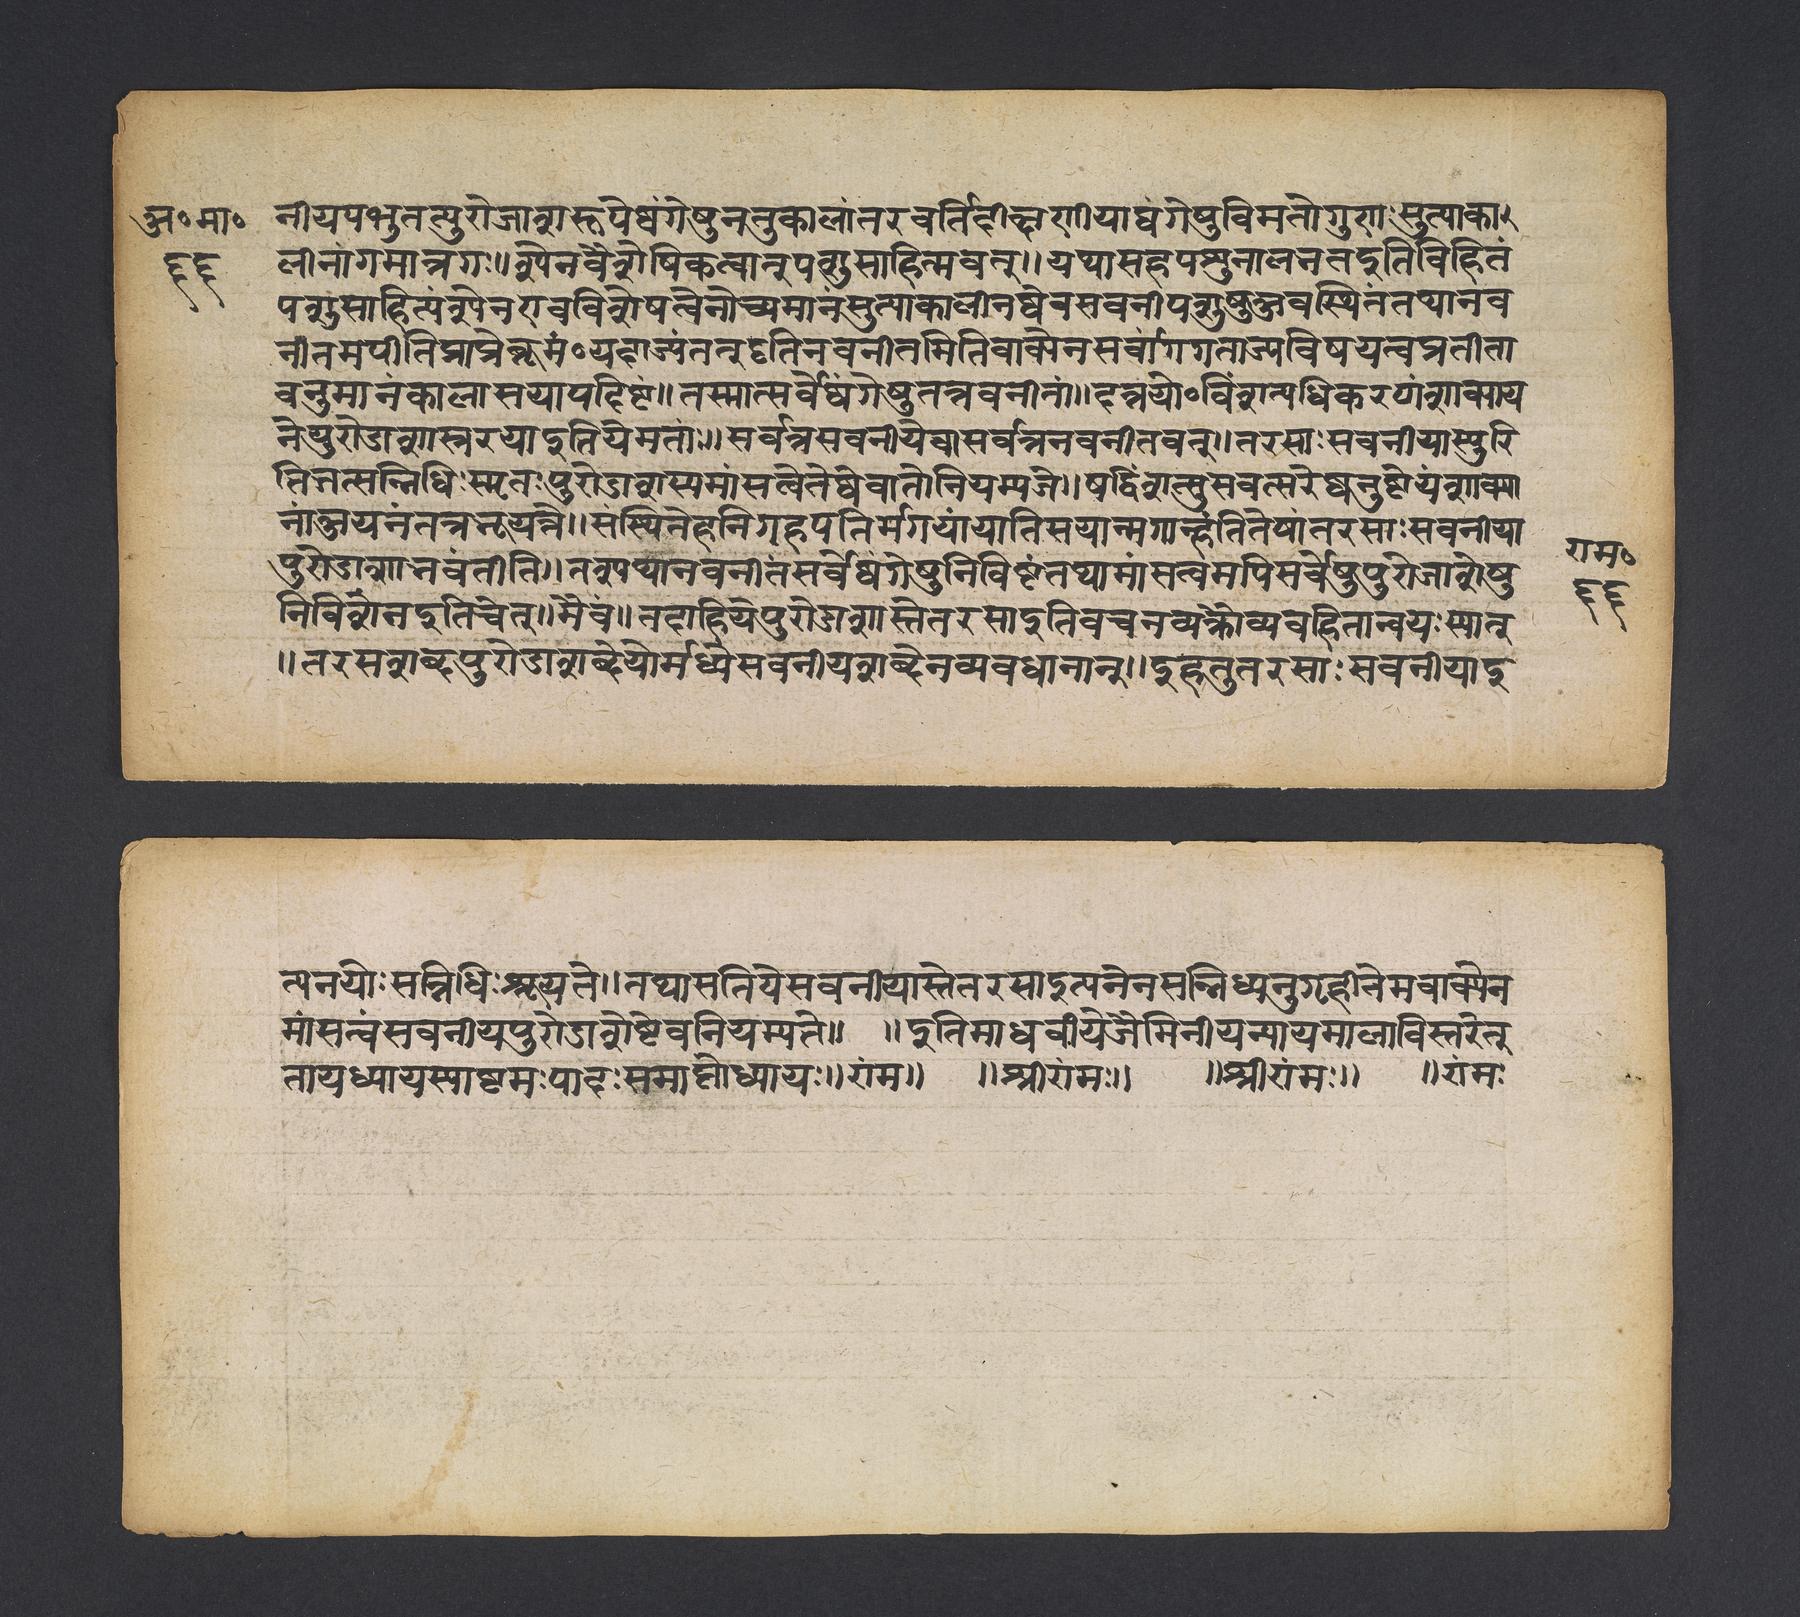 अ॰मा॰
६६
नीयपशुतत्पुरोडाशरूपेष्वंगेषुनतुकालांतरवर्तिदीक्षणीयाद्यंगेषुविमतोगुणःसुत्याका
लीनांगमात्रगः॥श्येनवैशेषिकत्वात्पशुसाहित्यवत्॥यथासहपशूनालभतइतिविहितं
पशुसाहित्यंश्येनएवविशेषत्वेनोच्यमानंसुत्याकालीनष्वेवसवनीपशुषुअवस्थितंतथानव
नीतमपीतिप्राप्तेब्रूमं॰यदाज्यंतत्इतिनवनीतमितिवाक्येनसर्वांगगताज्यविषयत्वप्रतीता
वनुमानंकालासयापदिष्टं॥तस्मात्सर्वेष्वंगेषुतन्नवनीनां॥दन्नयो॰विंशत्यधिकरणंशाक्याय
नेपुरोडाशास्तरयाइतियेमताः॥सर्वत्रसवनीयेवासर्वत्रनवनीतवत्॥तरसाःसवनीयास्पुरि
तितत्सन्निधिःस्मृतःपुरोडाशस्यमांसत्वेतेष्वेवातोनियम्यजे॥षट्त्रिंशत्सुसवत्सरेष्वनुष्टेयंशाक्या
नांअयनंतत्रश्रूयन्ने॥संस्थितेहनिगृहपतिर्मृगयांयातिसयान्मृगान्हंतितेषांतरसाःसवनीया
पुरोडाशानवंतीति॥तत्रयथानवनीतंसर्वेष्वंगेषुनिविष्टंतथामांसत्वमपिसर्वेषुपुरोडाशेषु
निविशेतइतिचेत्॥मैवं॥तदाहियेपुरोडाशास्तेतरसाइतिवचनव्यक्तौव्यवहितान्वयःस्यात्
॥तरसशब्दपुरोडाशब्देयोर्मध्येसवनीयशब्देनव्यवधानात्॥इहतुतरसाःसवनीयाइ
राम॰
६६
त्यनयोःसन्निधिःश्रूयते॥तथासतियेसवनीयास्तेतरसाइत्यनेनसन्निध्यनुगृहीनेमवाक्येन
मांसत्वंसवनीयपुरोडाशेष्टेवनियम्यते॥ ॥इतिमाधवीयेजैमिनीयन्यायमालाविस्तरेतृ
तायध्यायस्याष्टमःपादःसमाप्तोध्यायः॥रांम॥ ॥श्रीरांमः॥ ॥श्रीरांमः॥ ॥रांमः